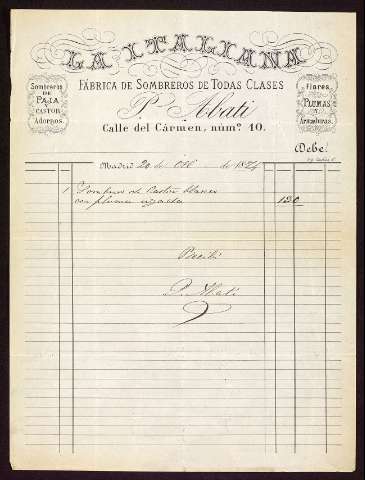 LA ITALIANA
FÁBRICA DE SOMBREROS DE TODAS CLASES
Sombreros
DE
PAJA
Y
CASTOR
Adornos.
Flores
PLUMAS
Y
Armaduras.
P. Abati
Calle del Cármen, núm.º 10.
Debe:
Madrid 20 de de 1874
1 Sombrero de Castor blanco
con pluma rizada 130
Recibí
P. Abati